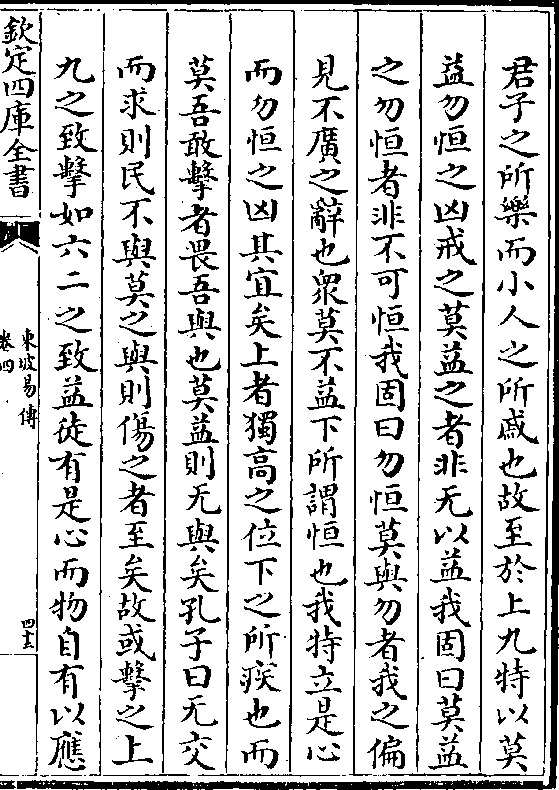 君子之所樂而小人之所戚也故至於上九特以莫
益勿恒之凶戒之莫益之者非无以益我固曰莫益
之勿恒者非不可恒我固曰勿恒莫與勿者我之偏
見不廣之辭也衆莫不益下所謂恒也我特立是心
而勿恒之凶其宜矣上者獨高之位下之所疾也而
莫吾敢擊者畏吾與也莫益則无與矣孔子曰无交
而求則民不與莫之與則傷之者至矣故或擊之上
九之致擊如六二之致益徒有是心而物自有以應
欽定四庫全書
東坡易傳
卷四